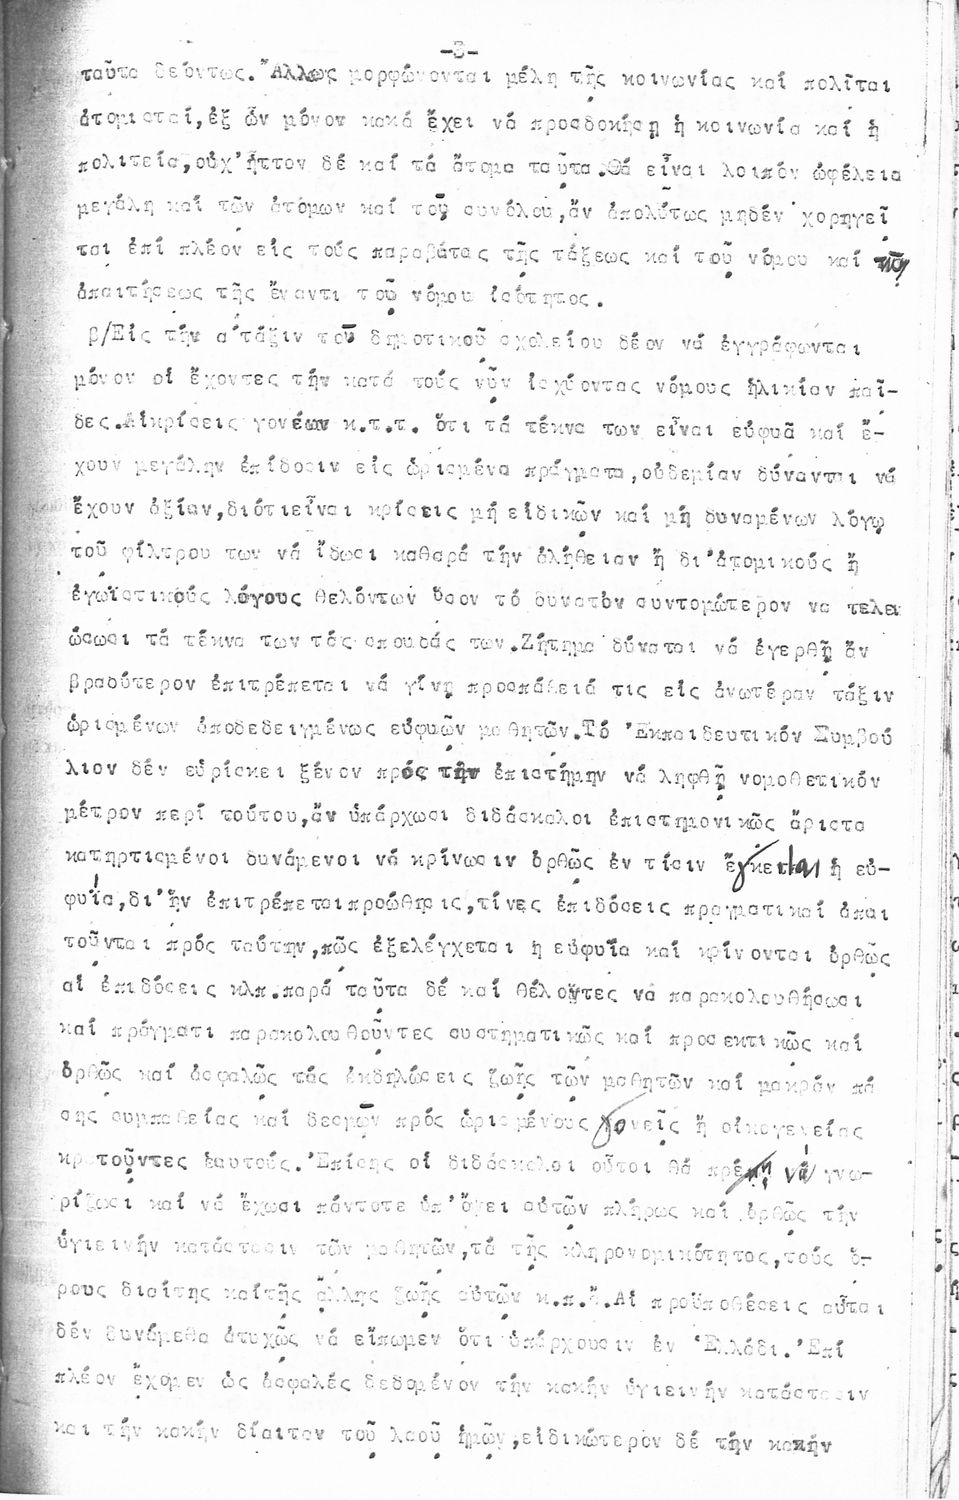 -3-
ταῦτα δεόντως. Ἄλλως μορφώνονται μέλη τῆς κοινωνίας καί πολῖται
ἀτομισταί,ἐξ ὧν μόνον κακά ἔχει νά προσδοκήσῃ ἡ κοινωνία καί ἡ
πολιτεία,οὐχ'ἧττον δέ καί τά ἄτομα ταῦτα.Θά εἶναι λοιπόν ὠφέλεια
μεγάλη καί τῶν ἀτόμων καί τοῦ συνόλου,ἄν ἀπολύτως μηδέν χορηγεῖ
ται ἐπί πλέον εἰς τούς παραβάτας τῆς τάξεως καί τοῦ νόμου καί τῆς
ἀπαιτήσεως τῆς ἔναντι τοῦ νόμου ἰσότητος.
β/Εἰς τήν α΄τάξιν τοῦ δημοτικοῦ σχολείου δέον νά ἐγγράφωνται
μόνον οἱ ἔχοντες τήν κατά τούς νῦν ἰσχύοντας νόμους ἡλικίαν παῖ-
δες.Αἱκρίσεις γονέων κ.τ.τ. ὅτι τά τέκνα των εἶναι εὐφυᾶ καί ἔ-
χουν μεγάλην ἐπίδοσιν εἰς ὡρισμένα πράγματα,οὐδεμίαν δύνανται νά
ἔχουν ἀξίαν,διότιεἶναι κρίσεις μή εἰδικῶν καί μή δυναμένων λόγῳ
τοῦ φίλτρου των νά ἴδωσι καθαρά τήν ἀλήθειαν ἤ δι'ἀτομικούς ἤ
ἐγωϊστικούς λόγους θελόντων ὅσον τό δυνατόν συντομώτερον να τελει
ώσωσι τά τέκνα των τάς σπουδάς των.Ζήτημα δύναται νά ἐγερθῇ ἄν
βραδύτερον ἐπιτρέπεται νά γίνῃ προσπάθειά τις εἰς ἀνωτέραν τάξιν
ὡρισμένων ἀποδεδειγμένως εὐφυῶν μαθητῶν.Τό Ἐκπαιδευτικόν Συμβού
λιον δέν εὑρίσκει ξένον πρός τήν ἐπιστήμην νά ληφθῇ νομοθετικόν
μέτρον περί τούτου,ἄν ὑπάρχωσι διδάσκαλοι ἐπιστημονικῶς ἄριστα
κατηρτισμένοι δυνάμενοι νά κρίνωσιν ὀρθῶς ἐν τίσιν ἔγκειται ἡ εὐ-
φυΐα,δι'ἥν ἐπιτρέπεταιπροώθησις,τίνες ἐπιδόσεις πραγματικαί ἀπαι
τοῦνται πρός ταύτην,πῶς ἐξελέγχεται ἡ εὐφυΐα καί κρίνονται ὀρθῶς
αἱ ἐπιδόσεις κλπ.παρά ταῦτα δέ καί θέλοντες νά παρακολουθήσωσι
καί πράγματι παρακολουθοῦντες συστηματικῶς καί προσεκτικῶς καί
ὀρθῶς καί ἀσφαλῶς τάς ἐκδηλώσεις ζωῆς τῶν μαθητῶν καί μακράν πά
σης συμπαθείας καί δεσμῶν πρός ὡρισμένους γονεῖς ἤ οἰκογενείας
κρατοῦντες ἑαυτούς.Ἐπίσης οἱ διδάσκαλοι οὗτοι θά πρέπῃ νά γνω-
ρίζωσι καί νά ἔχωσι πάντοτε ὑπ'ὄψει αὐτῶν πλήρως καί ὀρθῶς τήν
ὑγιεινήν κατάστασιν τῶν μαθητῶν,τά τῆς κληρονομικότητος,τούς ὅ-
ρους διαίτης καίτῆς ἄλλης ζωῆς αὐτῶν κ.π.ἄ.Αἱ προϋποθέσεις αὗται
δέν δυνάμεθα ἀτυχῶς νά εἴπωμεν ὅτι ὑπάρχουσιν ἐν Ἑλλάδι.Ἐπί
πλέον ἔχομεν ὡς ἀσφαλές δεδομένον τήν κακήν ὑγιεινήν κατάστασιν
και τήν κακήν δίαιταν τοῦ λαοῦ ἡμῶν,εἰδικώτερον δέ τήν κακήν